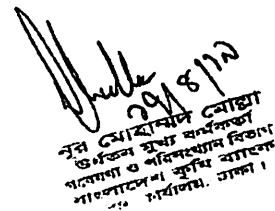 ২৭/৪/১৯
নূর মোহাম্মদ মোল্লা
ঊর্ধ্বতন মুখ্য কর্মকর্তা
গবেষণা ও পরিসংখ্যান বিভাগ
বাংলাদেশ কৃষি ব্যাংক
কার্যালয়, ঢাকা।